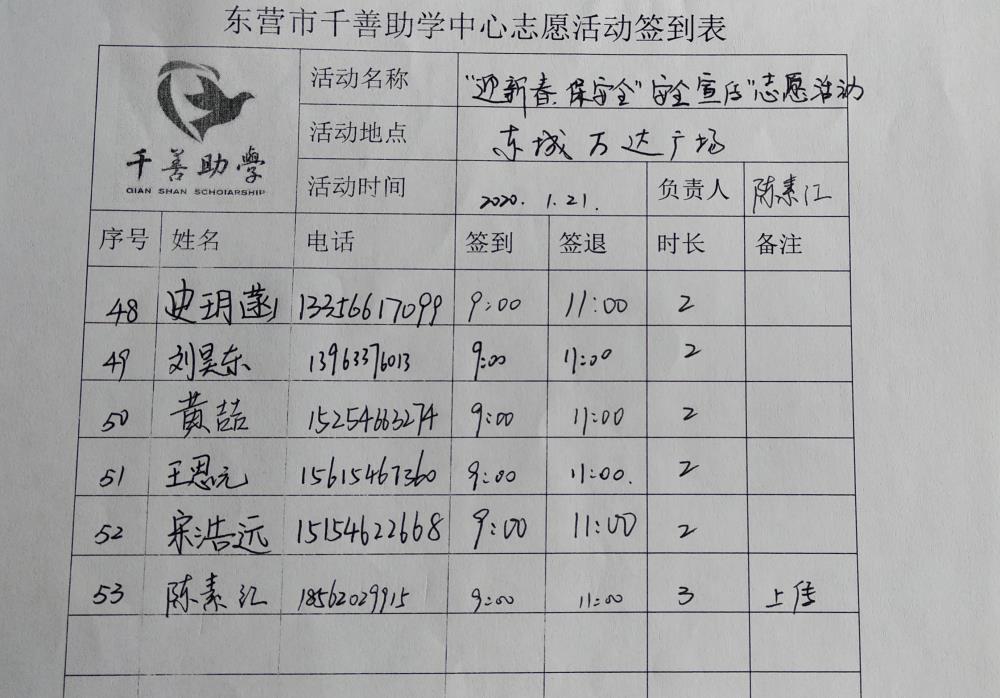 东营市千善助学中心志愿活动签到表
千善助學
QIAN SHAN SCHOIARSHIP
活动名称 "迎新春、保安全"安全宣传"志愿活动
活动地点 东城万达广场
活动时间 2020. 1.21. 负责人 陈素江
序号 姓名 电话 签到 签退 时长 备注
48 史玥菡 13356617099 9:00 11:00 2
49 刘昊东 13963376013 9:00 11:00 2
50 黄喆 15254663274 9:00 11:00 2
51 王思元 15615467360 9:00 11:00. 2
52 宋浩远 15154622668 9:00 11:00 2
53 陈素江 18562029915 9:00 11:00 3 上传